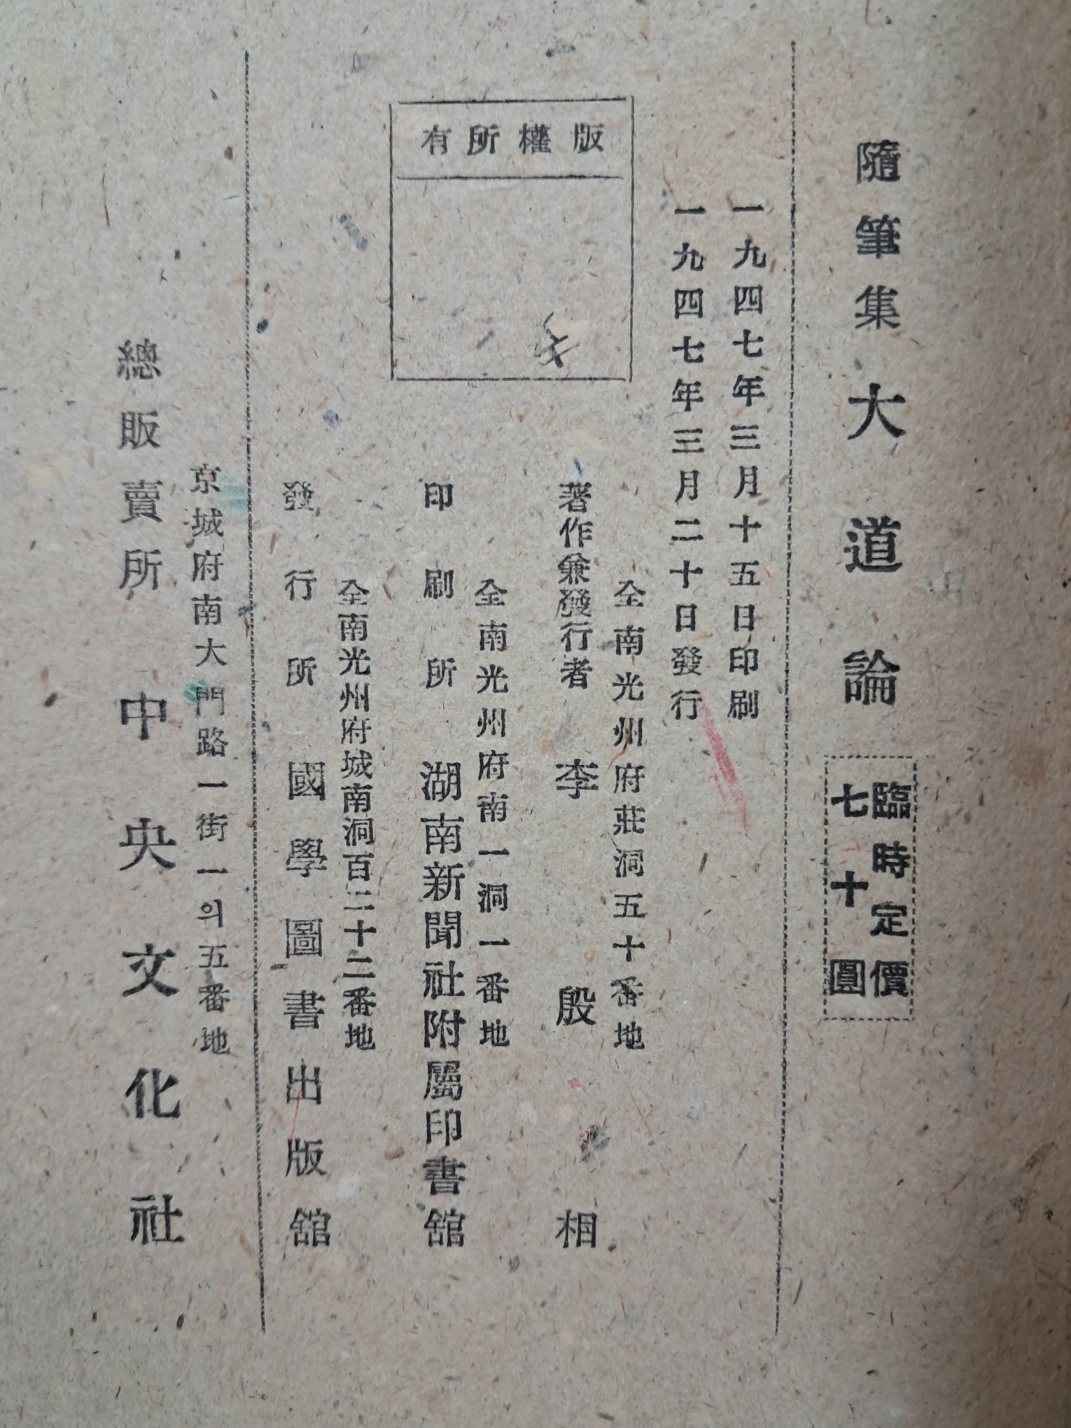 隨筆集 大道論
臨時定價
七十圓
一九四七年三月十五日印刷
一九四七年三月二十日發行
版權所有
全南光州府莊洞五十番地
著作兼發行者 李殷相
全南光州府南一洞一番地
印刷所 湖南新聞社附屬印書舘
全南光州府城南洞百二十二番地
發行所 國學圖書出版舘
京城府南大門路一街一의五番地
總販賣所 中央文化社